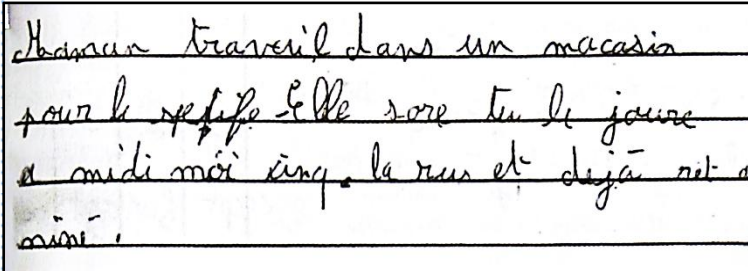 Maman traveil dans un macasin
pour le spefife. Elle sore tu le joure
a midi moi cinq. la rus et dejà
mini.